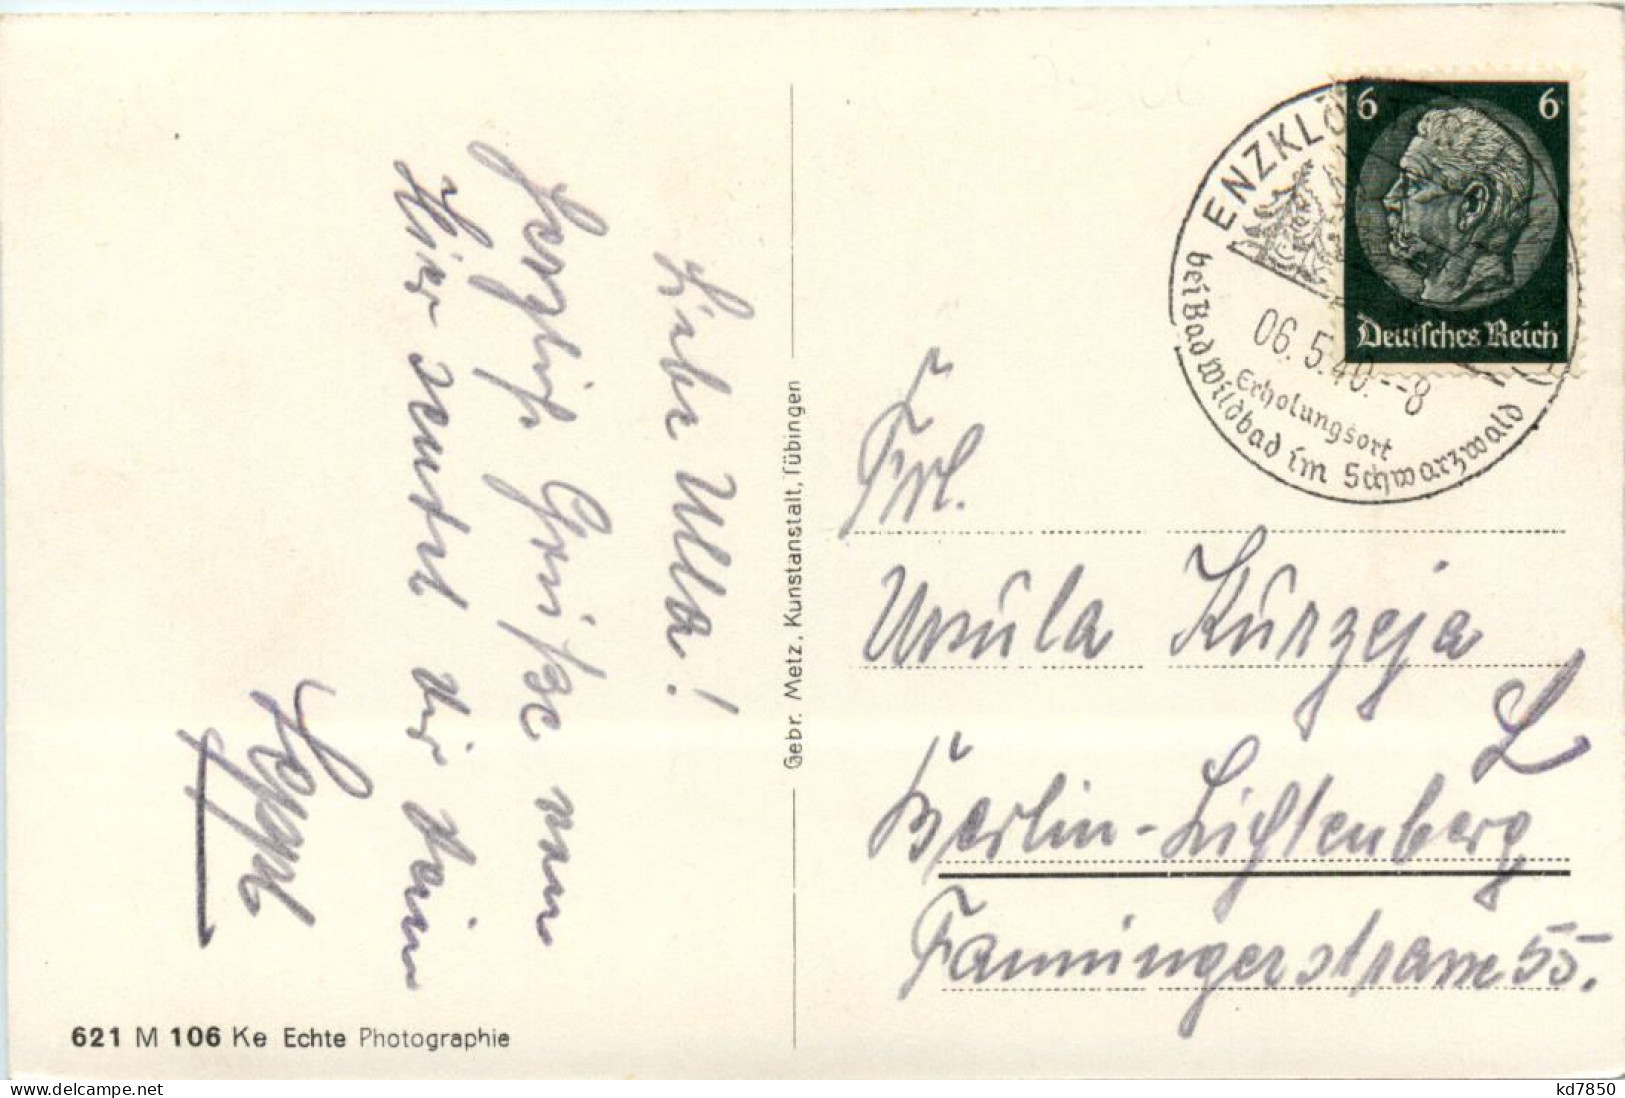 Liebe Ulla!
Herzliche Grüße von
Hier sendet dir dein
Seppl
Gebr. Metz, Kunstanstalt, Tübingen
621 M 106 Ke Echte Photographie
ENZKLÖ
bei Bad Wildbad im Schwarzwald
06.5.40.--8
Erholungsort
6 6
Deutsches Reich
Frl.
Ursula Kurzeja
Berlin-Lichtenberg
Fanningerstrasse 55.
delcampe.net
kd7850